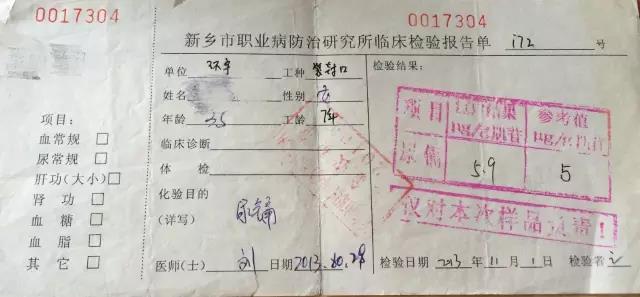 0017304
0017304
新乡市职业病防治研究所临床检验报告单 172 号
单位 环宇 工种
姓名 性别 女
年龄 35 工龄 7年
临床诊断
体 检
化验目的
(详写) 尿镉
医师(士) 刘 日期 2013.10.28
项目:
血常规 □
尿常规 □
肝功(大小) □
肾 功 □
血 糖 □
血 脂 □
其 它 □
检验结果:
项目 结果 参考值
μg/g肌酐 μg/g肌酐
尿镉 5.9 5
仅对本次样品负责!
检验日期 2013 年 11 月 1 日 检验者